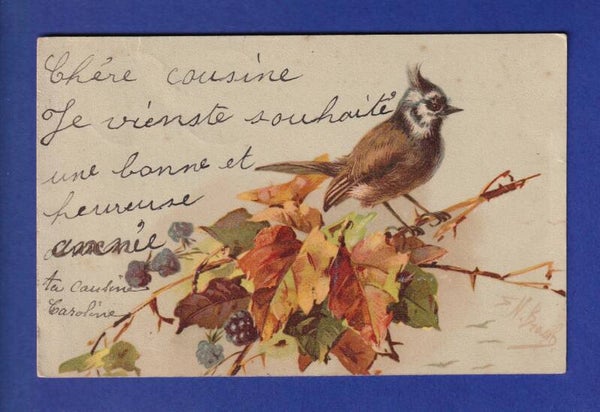 Chére cousine
Je vienste souhaité
une bonne et
heureuse
année
ta causine
Caroline